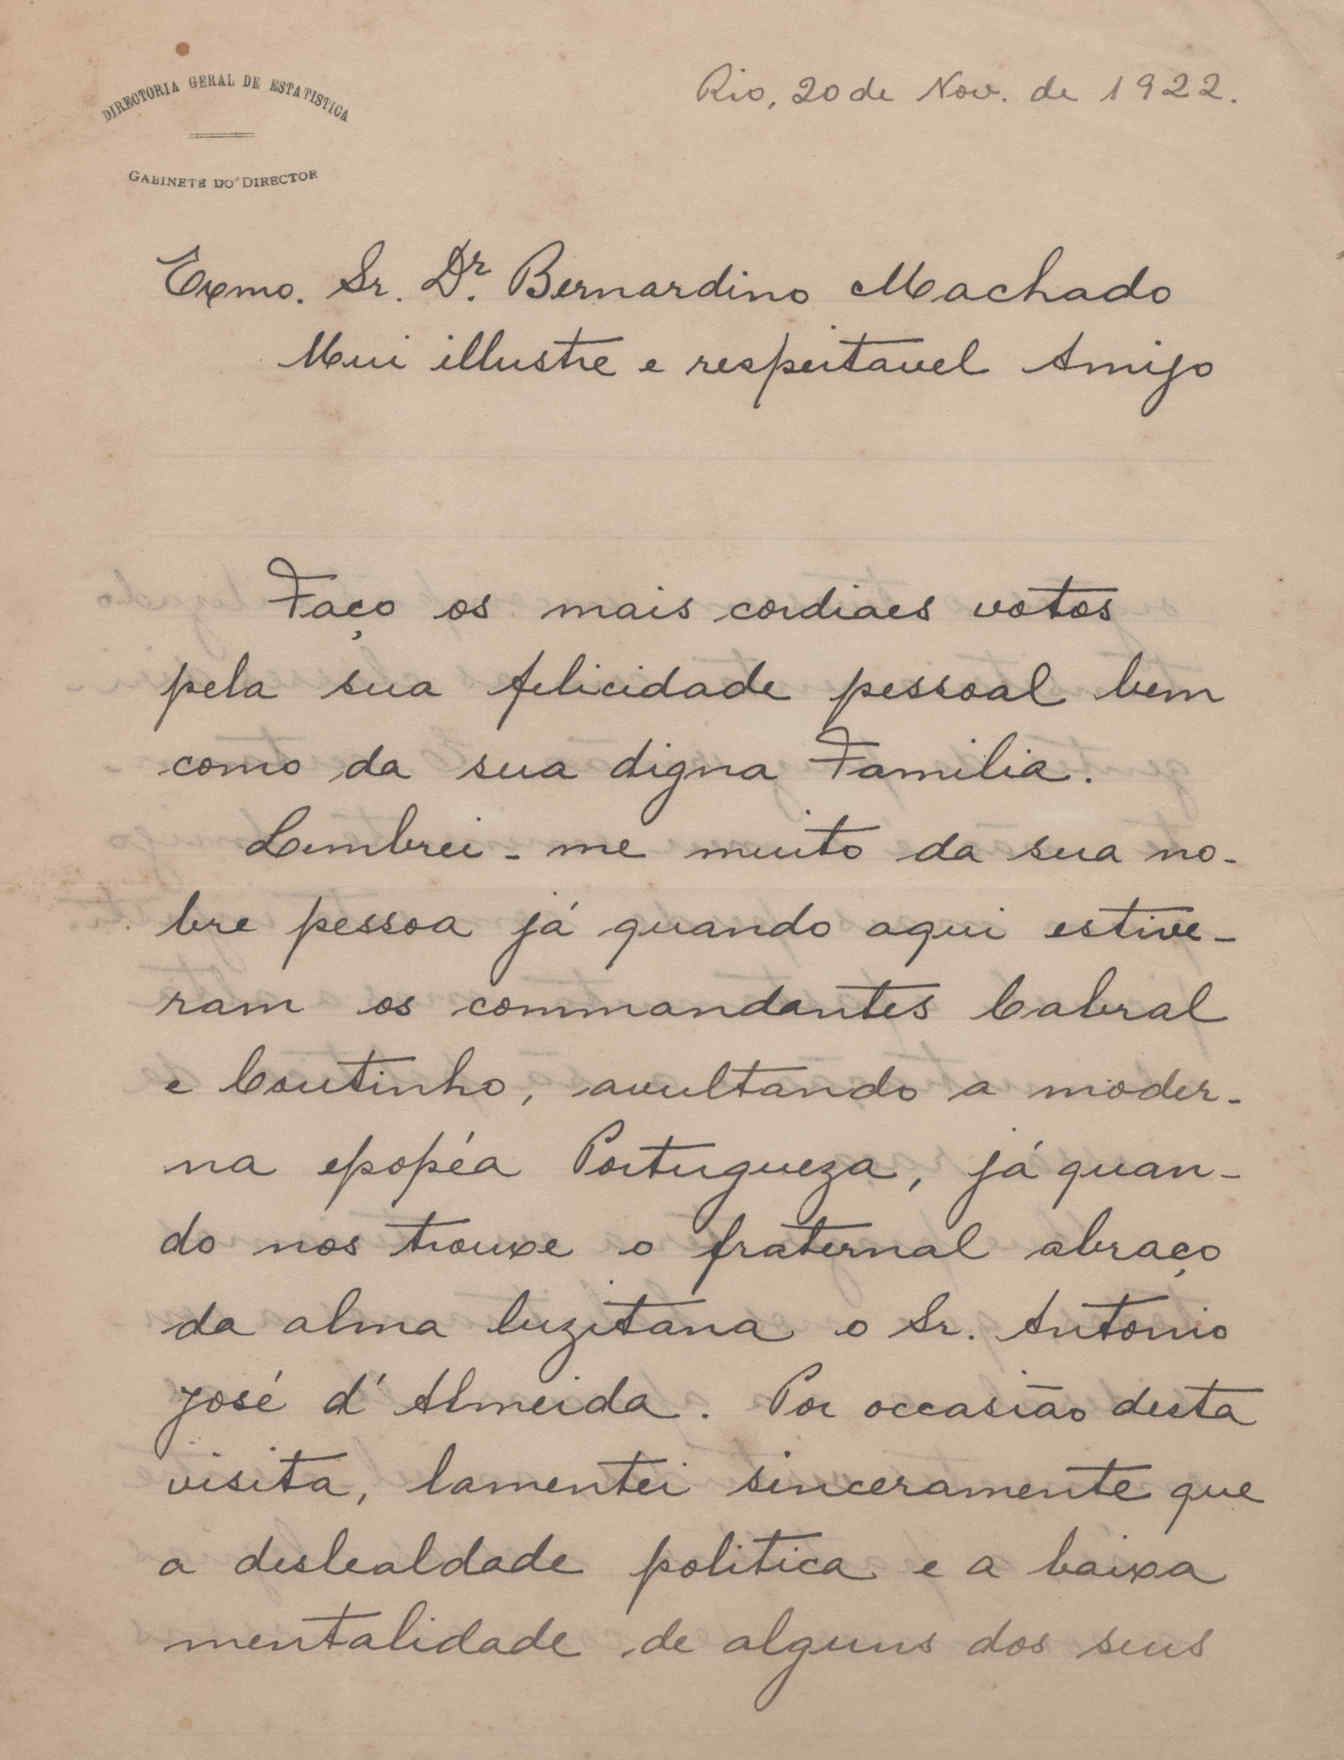 DIRECTORIA GERAL DE ESTATISTICA
GABINETE DO DIRECTOR
Rio, 20 de Nov. de 1922.
Exmo. Sr. Dr. Bernardino Machado
Mui illustre e respeitavel Amigo
Faço os mais cordiaes votos
pela sua felicidade pessoal bem
como da sua digna Familia.
Lembrei-me muito da sua no-
bre pessoa já quando aqui estive-
ram os commandantes Cabral
e Coutinho, avultando a moder-
na epopéa Portugueza, já quan-
do nos trouxe o fraternal abraço
da alma luzitana o Sr. Antonio
José d'Almeida. Por occasião desta
visita, lamentei sinceramente que
a deslealdade politica e a baixa
mentalidade de alguns dos seus